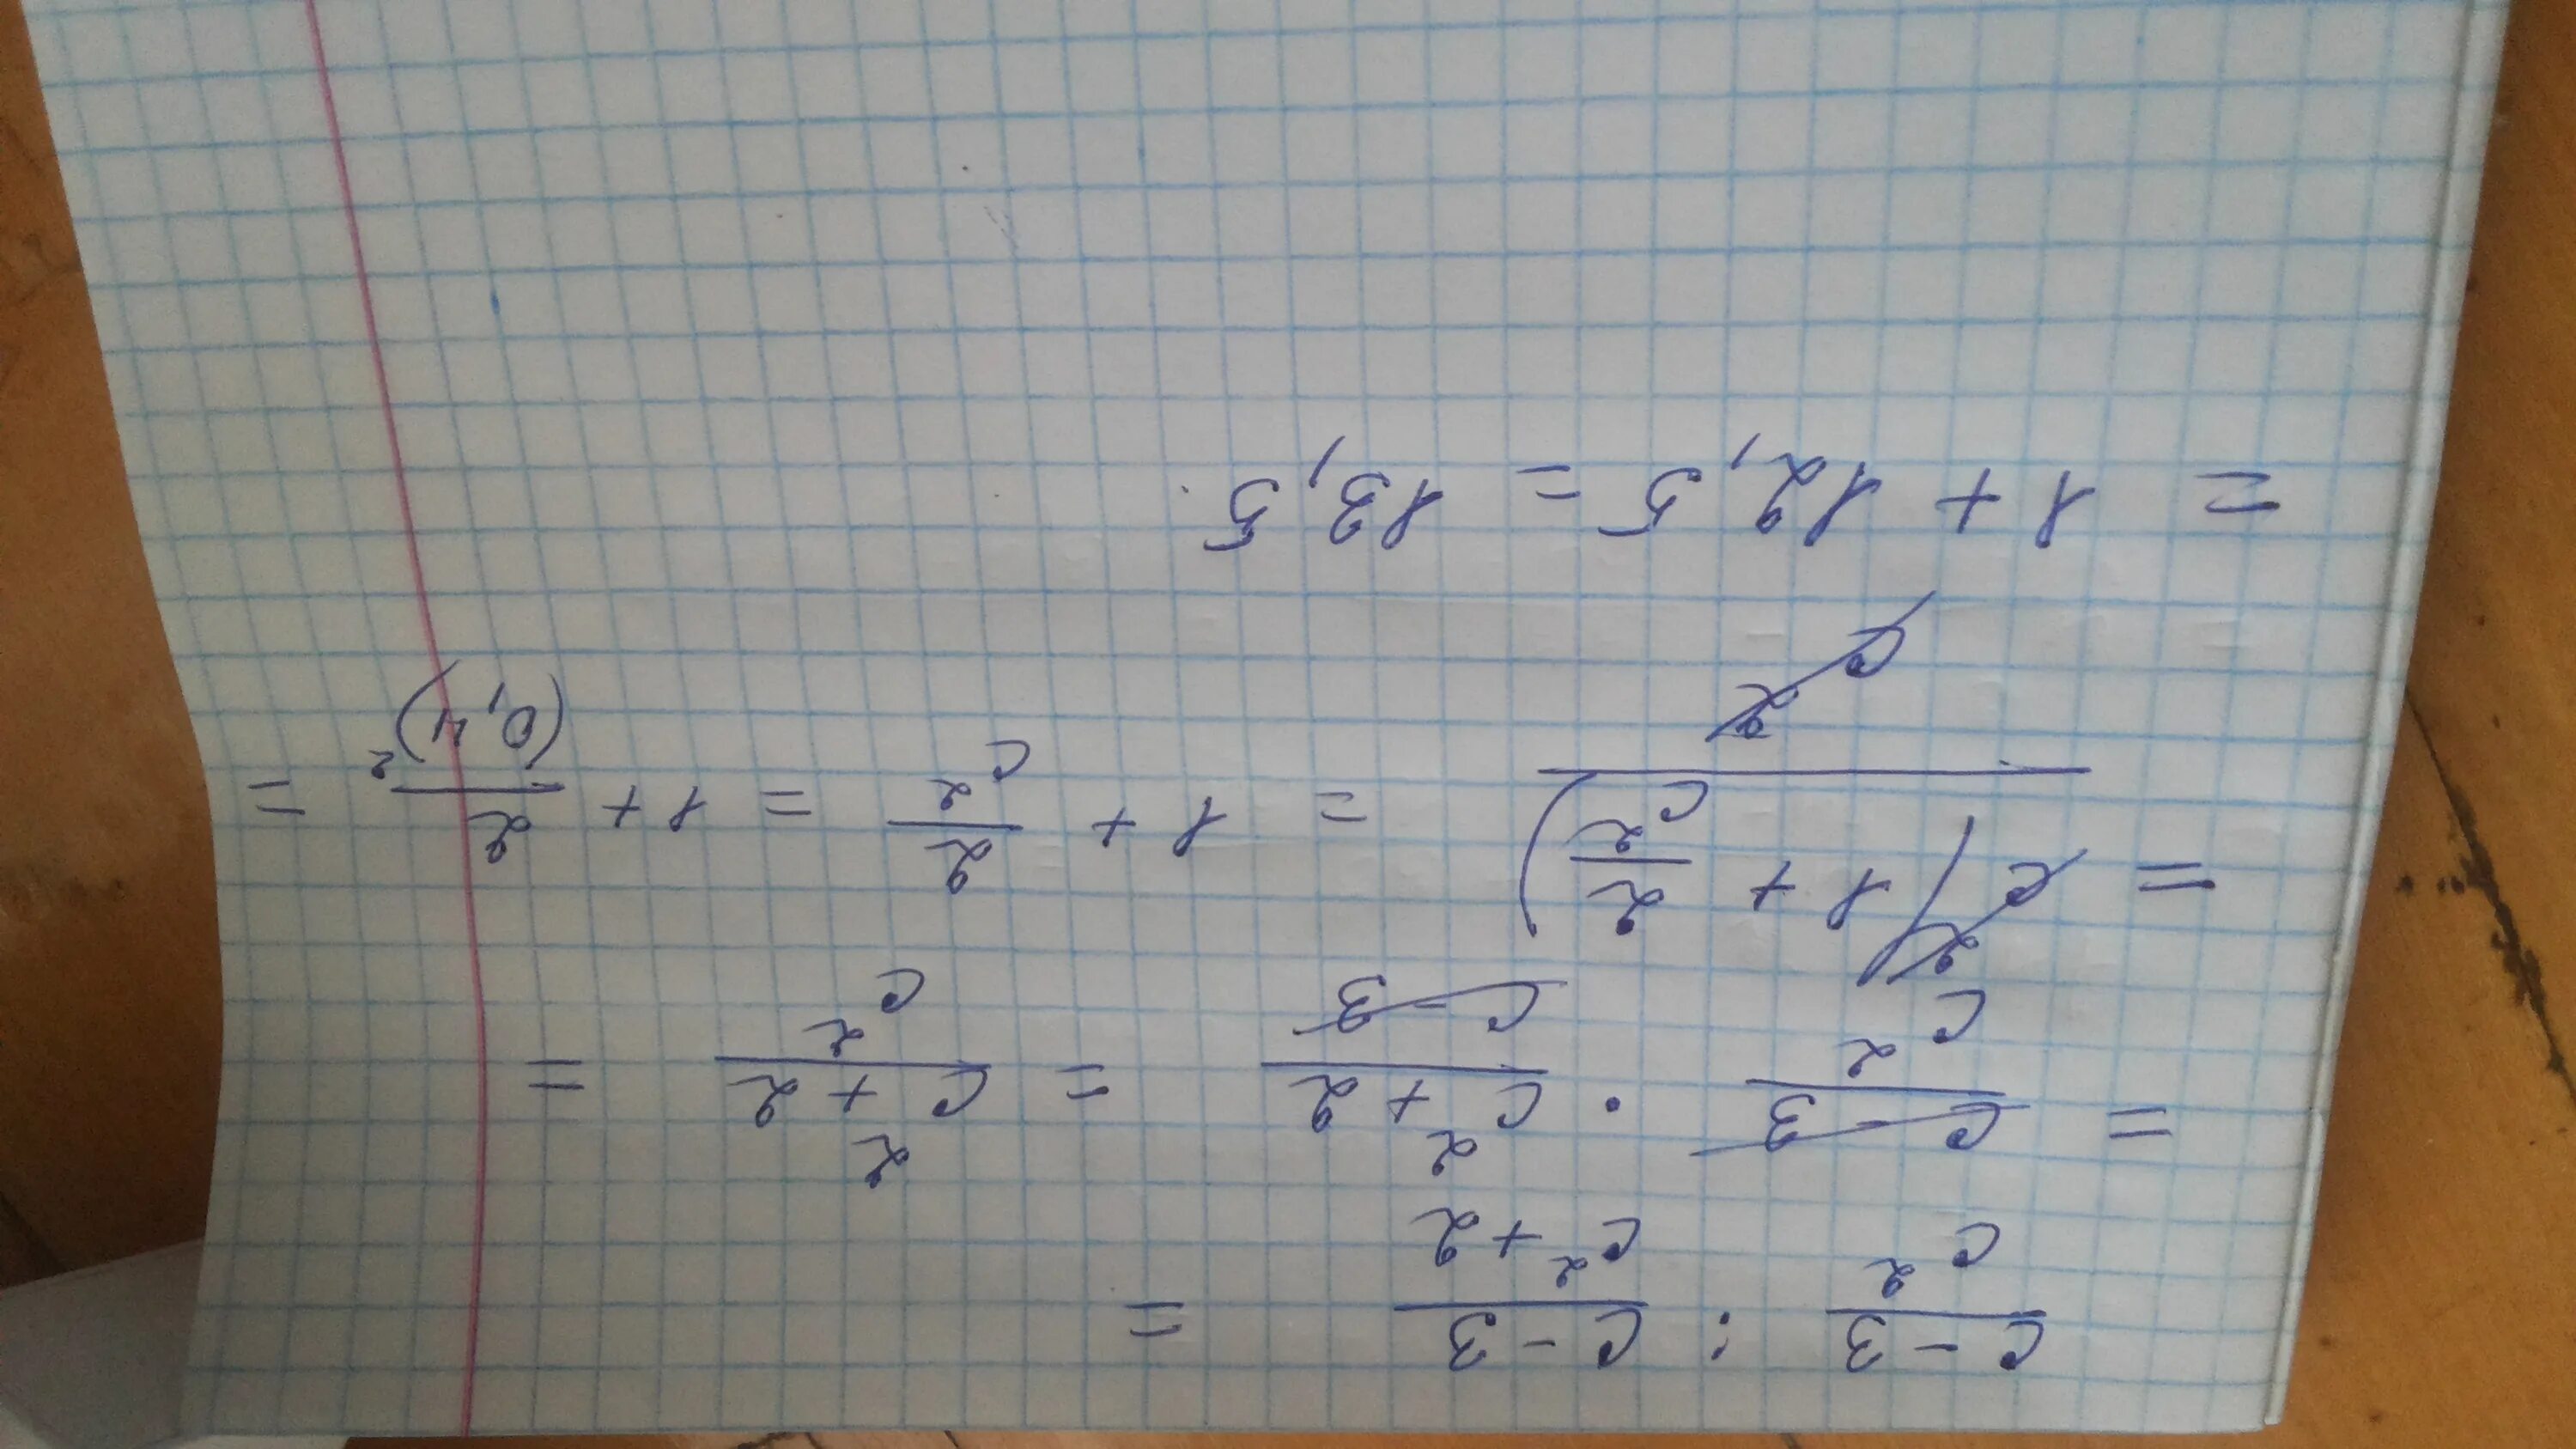 (c - 3)/c² : (c - 3)/(c² + 2) =
= (c - 3)/c² · (c² + 2)/(c - 3) = (c² + 2)/c² =
= c²(1 + 2/c²)/c² = 1 + 2/c² = 1 + 2/(0,4)² =
= 1 + 12,5 = 13,5.